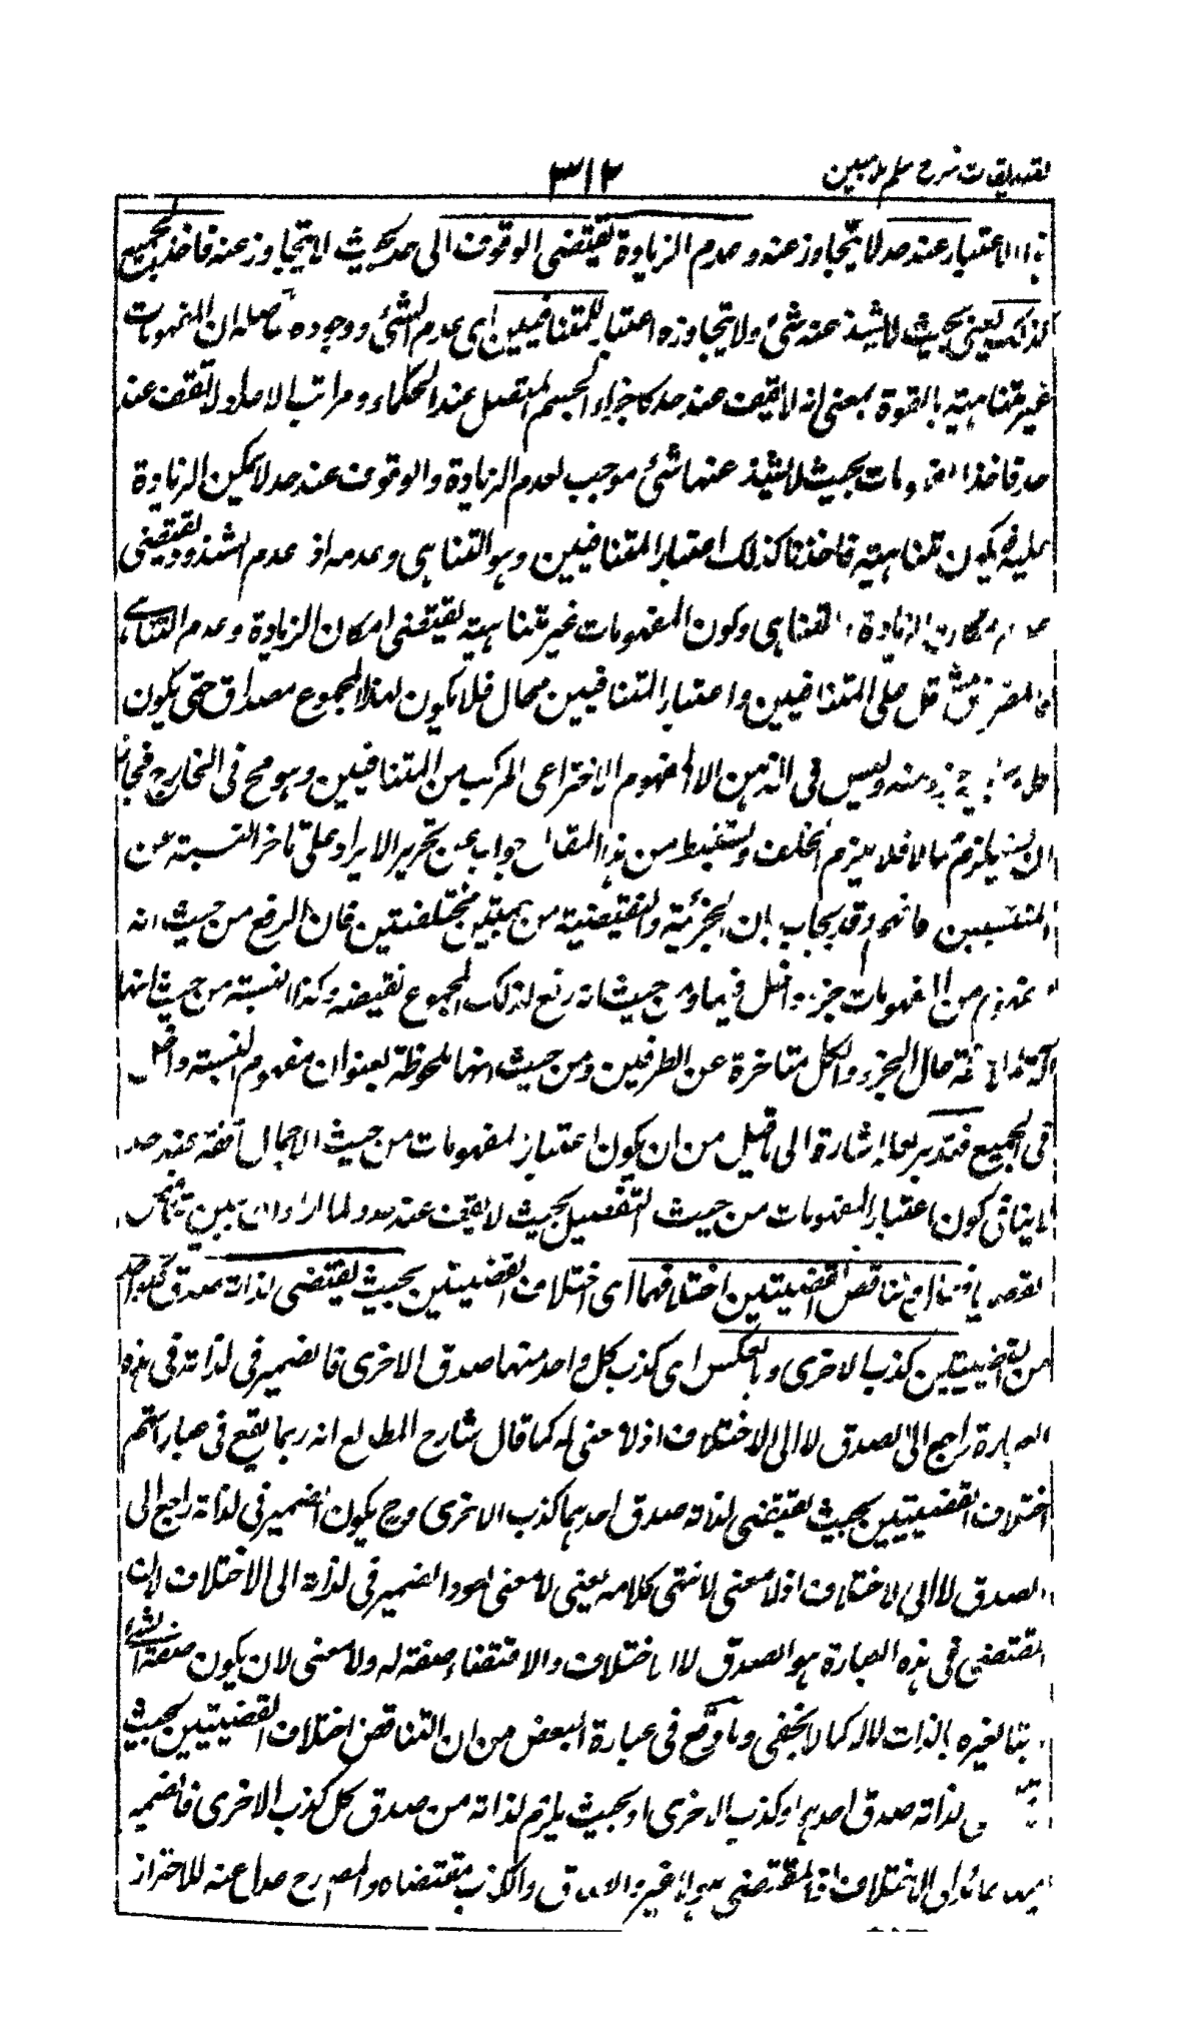 تصدیقات شرح سلم ملامبین
٣١٢
الاعتبار عند حد لا يتجاوز عنه وعدم الزيادة يقتضى الوقوف الى حد بحيث لا يتجاوز عنه فاخذ الجميع
كذلك يعنى بحيث لا يشذ عنه شئ ولا يتجاوزه اعتبار للمتنافيين اى عدم الشئ ووجوده حاصله ان المفهومات
غير متناهية بالقوة بمعنى انه لا يقف عند حد كاجزاء الجسم المتصل عند الحكماء ومراتب الاعداد لا تقف عند
حد فاخذ المفهومات بحيث لا يشذ عنها شئ موجب لعدم الزيادة والوقوف عند حد لا يمكن الزيادة
عليه فيكون متناهية فاخذها كذلك اعتبار المتنافيين وهو التناهى وعدمه اذ عدم الشذوذ يقتضى
عدم امكان الزيادة والتناهى وكون المفهومات غير متناهية يقتضى امكان الزيادة وعدم التناهى
على المتنافيين واعتبار المتنافيين محال فلا يكون لهذا المجموع مصداق حتى يكون
جزء منه وليس فى الذهن الا المفهوم الاختراعى المركب من المتنافيين وهو مح فى الخارج فجاز
ان يستلزم محالا فلا يلزم الخلف ويستنبط من هذا المقال جواب عن تحرير الايراد على تاخر النسبة عن
المنتسبين فافهم وقد يجاب بان الجزئية والنقيضية من جهتين مختلفتين فان الرفع من حيث انه
مفهوم من المفهومات جزء داخل فيها ومن حيث انه رفع لذلك المجموع نقيضه وكذا النسبة من حيث انها
آلة لملاحظة حال الجزء والكل متاخرة عن الطرفين ومن حيث انها ملحوظة بعنوان مفهوم النسبة داخل
فى الجميع فتدبر لعله اشارة الى ما قيل من ان يكون اعتبار المفهومات من حيث الاجمال آنفة عند حد
لا ينافى كون اعتبار المفهومات من حيث التفصيل بحيث لا يقف عند حد ولما اراد ان يبين
تناقض القضيتين اختلافهما اى اختلاف القضيتين بحيث يقتضى لذاته صدق كل واحد
من القضيتين كذب الاخرى وبالعكس اى كذب كل واحد منها صدق الاخرى فالضمير فى لذاته فى هذه
العبارة راجع الى الصدق لا الى الاختلاف اذ لا معنى له كما قال شارح المطالع انه ربما يقع فى عباراتهم
اختلاف القضيتين بحيث يقتضى لذاته صدق احدهما كذب الاخرى وح يكون الضمير فى لذاته راجع الى
الصدق لا الى الاختلاف اذ لا معنى له انتهى كلامه يعنى لا معنى لعود الضمير فى لذاته الى الاختلاف لان
المقتضى فى هذه العبارة هو الصدق لا الاختلاف والاقتضاء صفة له ولا معنى لان يكون صفة الشئ
ثابتا لغيره بالذات لا له كما لا يخفى وما وقع فى عبارة البعض من ان التناقض اختلاف القضيتين بحيث
لذاته صدق احدهما وكذب الاخرى او بحيث يلزم لذاته من صدق كل كذب الاخرى فالضمير
عائد الى الاختلاف اذ المقتضى هو لا غير والصدق والكذب مقتضاه والمصرح صداع عنه للاحتراز